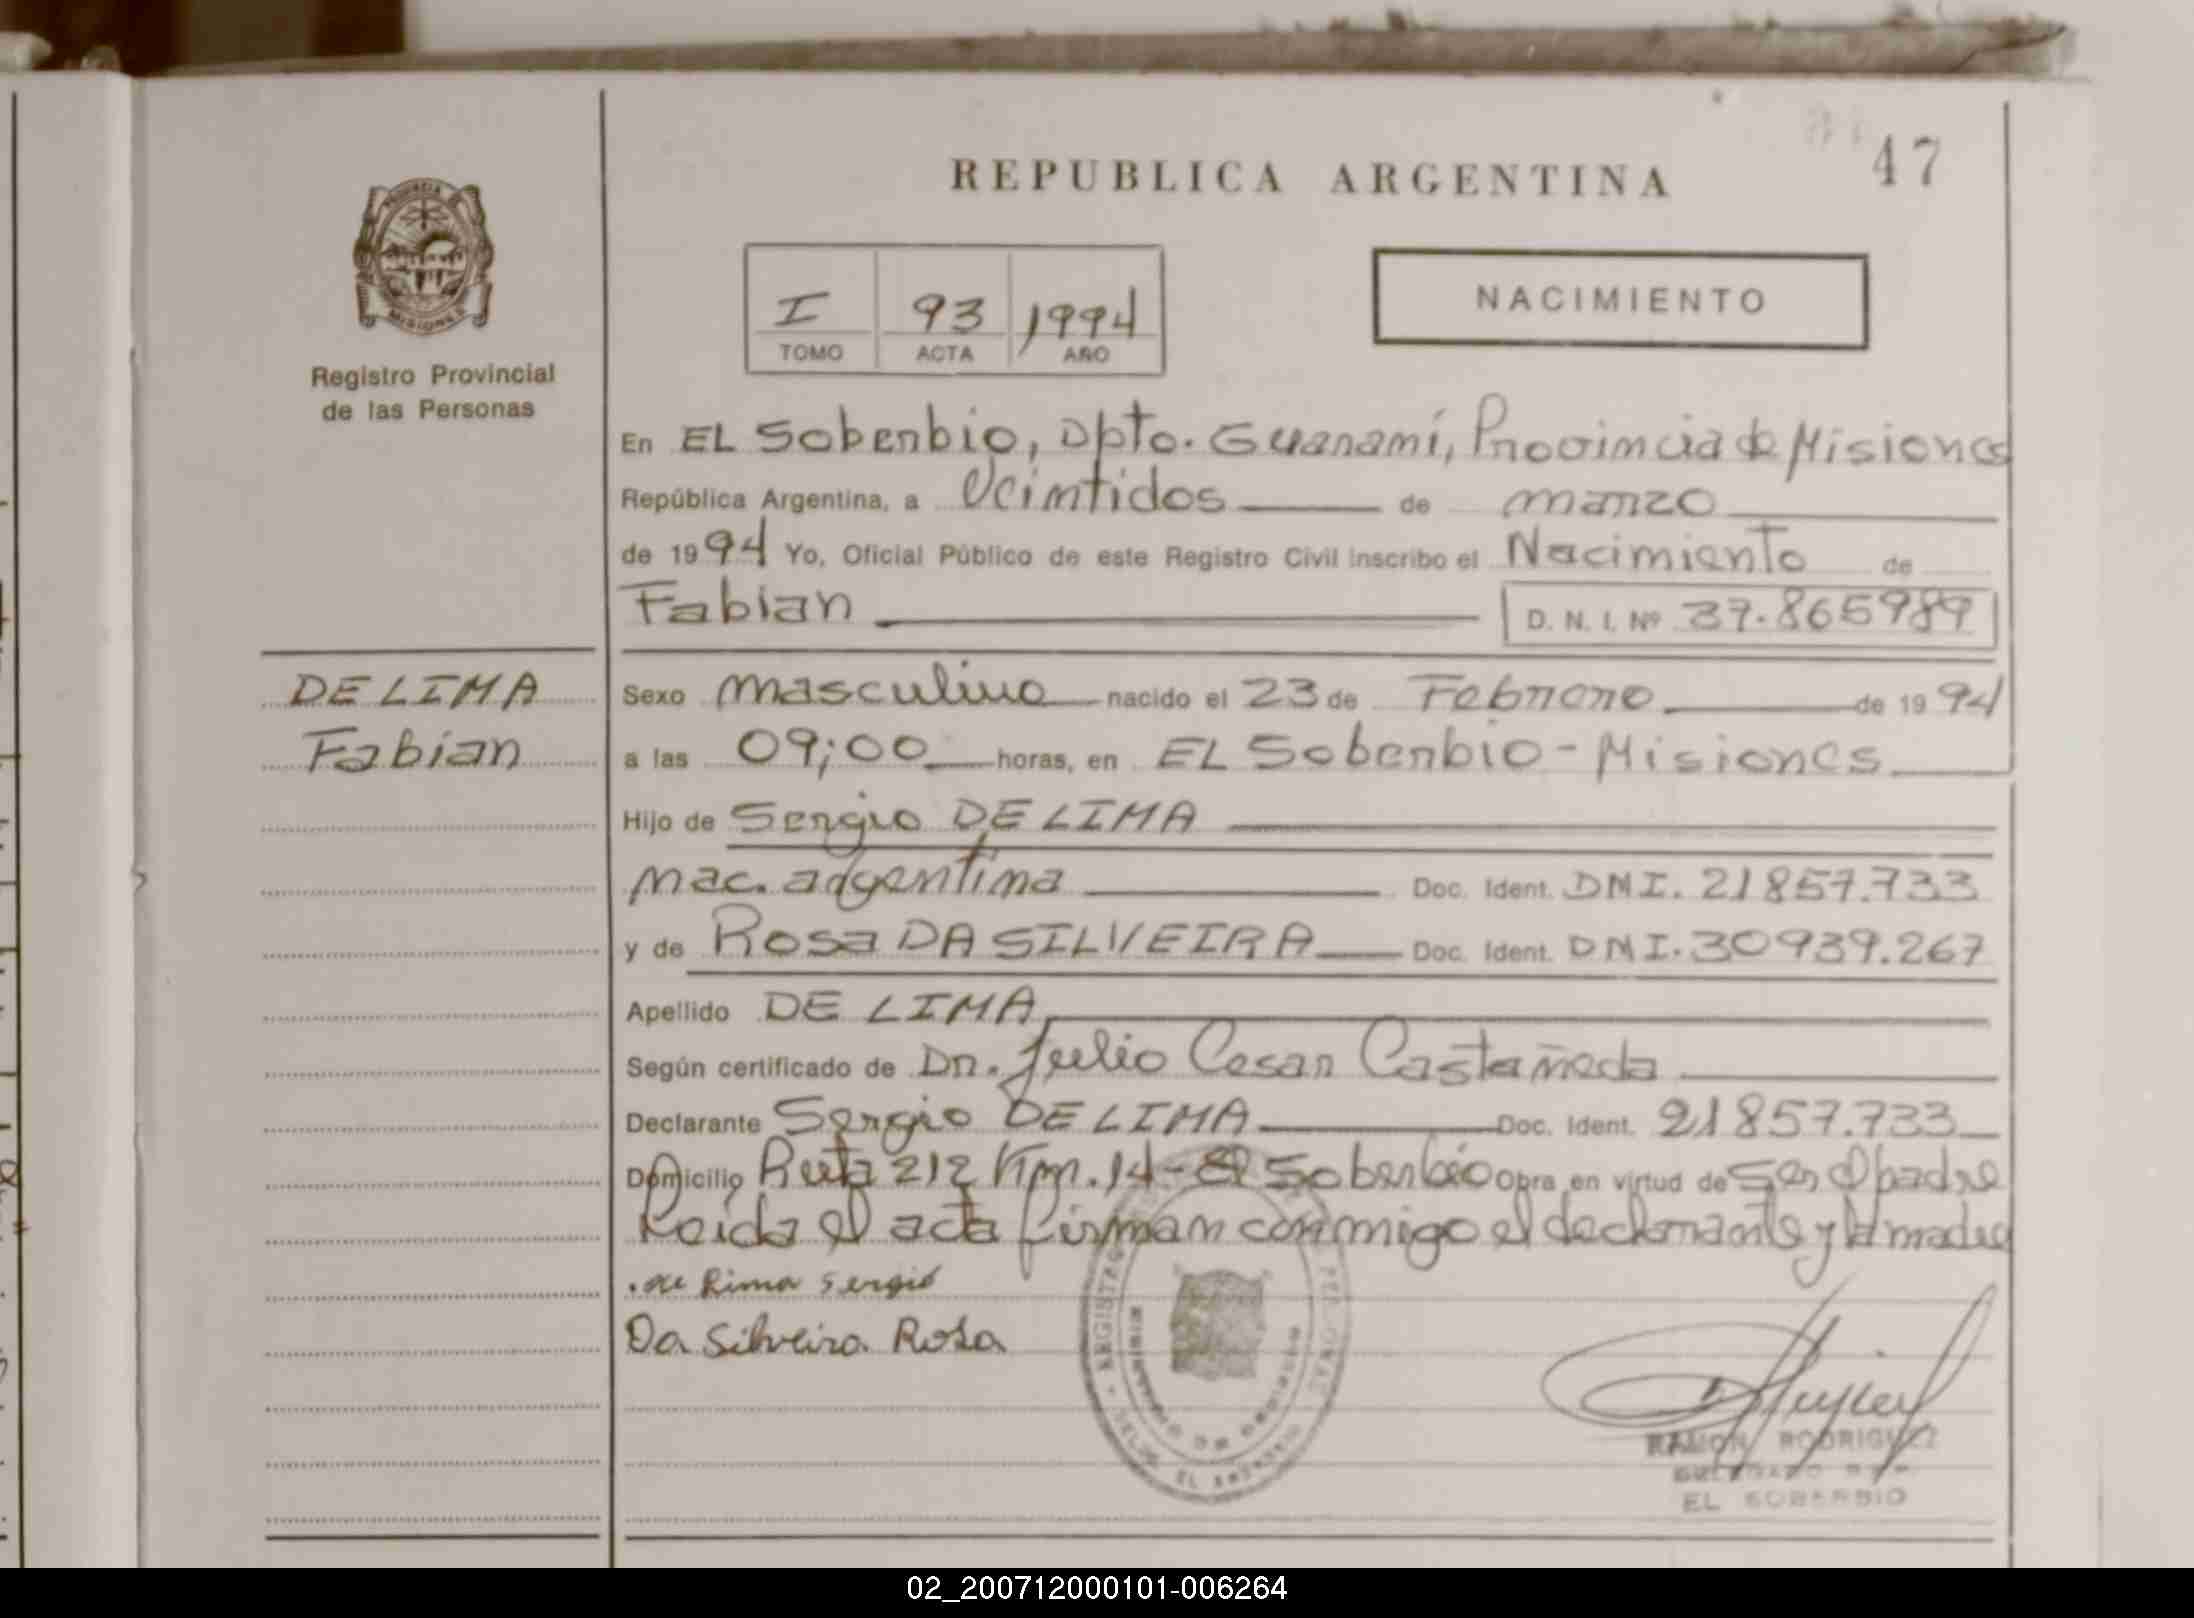 47
REPUBLICA ARGENTINA
PROVINCIA
MISIONES
Registro Provincial
de las Personas
I 93 1994
TOMO ACTA AÑO
NACIMIENTO
En EL Soberbio, Dpto. Guaraní, Provincia de Misiones
República Argentina, a Veintidos de marzo
de 1994 Yo, Oficial Público de este Registro Civil inscribo el Nacimiento de
Fabian D. N. I. Nº 37.865989
DE LIMA
Fabian
Sexo masculino nacido el 23 de Febrero de 1994
a las 09;00 horas, en EL Soberbio - Misiones
Hijo de Sergio DE LIMA
nac. argentina Doc. Ident. DNI. 21857.733
y de Rosa DA SILVEIRA Doc. Ident. DNI. 30939.267
Apellido DE LIMA
Según certificado de Dr. Julio Cesar Castañeda
Declarante Sergio DE LIMA Doc. Ident. 21857.733
Domicilio Ruta 212 Km. 14 - El Soberbio Obra en virtud de ser el padre
Leida el acta firman conmigo el declarante y la madre
de Lima Sergio
Da Silveira Rosa
RAMON RODRIGUEZ
EL SOBERBIO
02_200712000101-006264